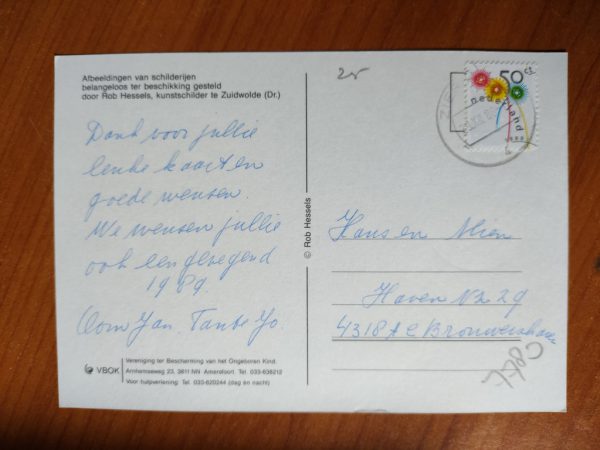 Afbeeldingen van schilderijen
belangeloos ter beschikking gesteld
door Rob Hessels, kunstschilder te Zuidwolde (Dr.)
Dank voor jullie
leuke kaart en
goede wensen.
We wensen jullie
ook een gezegend
1989.
Oom Jan. Tante Jo.
VBOK
Vereniging ter Bescherming van het Ongeboren Kind.
Arnhemseweg 23, 3811 NN Amersfoort. Tel. 033-638212
Voor hulpverlening: Tel. 033-620244 (dag en nacht)
© Rob Hessels
25
50 ct
nederland
1988
Hans en Mien
Haven Nz 29
4318 AE Brouwershaven